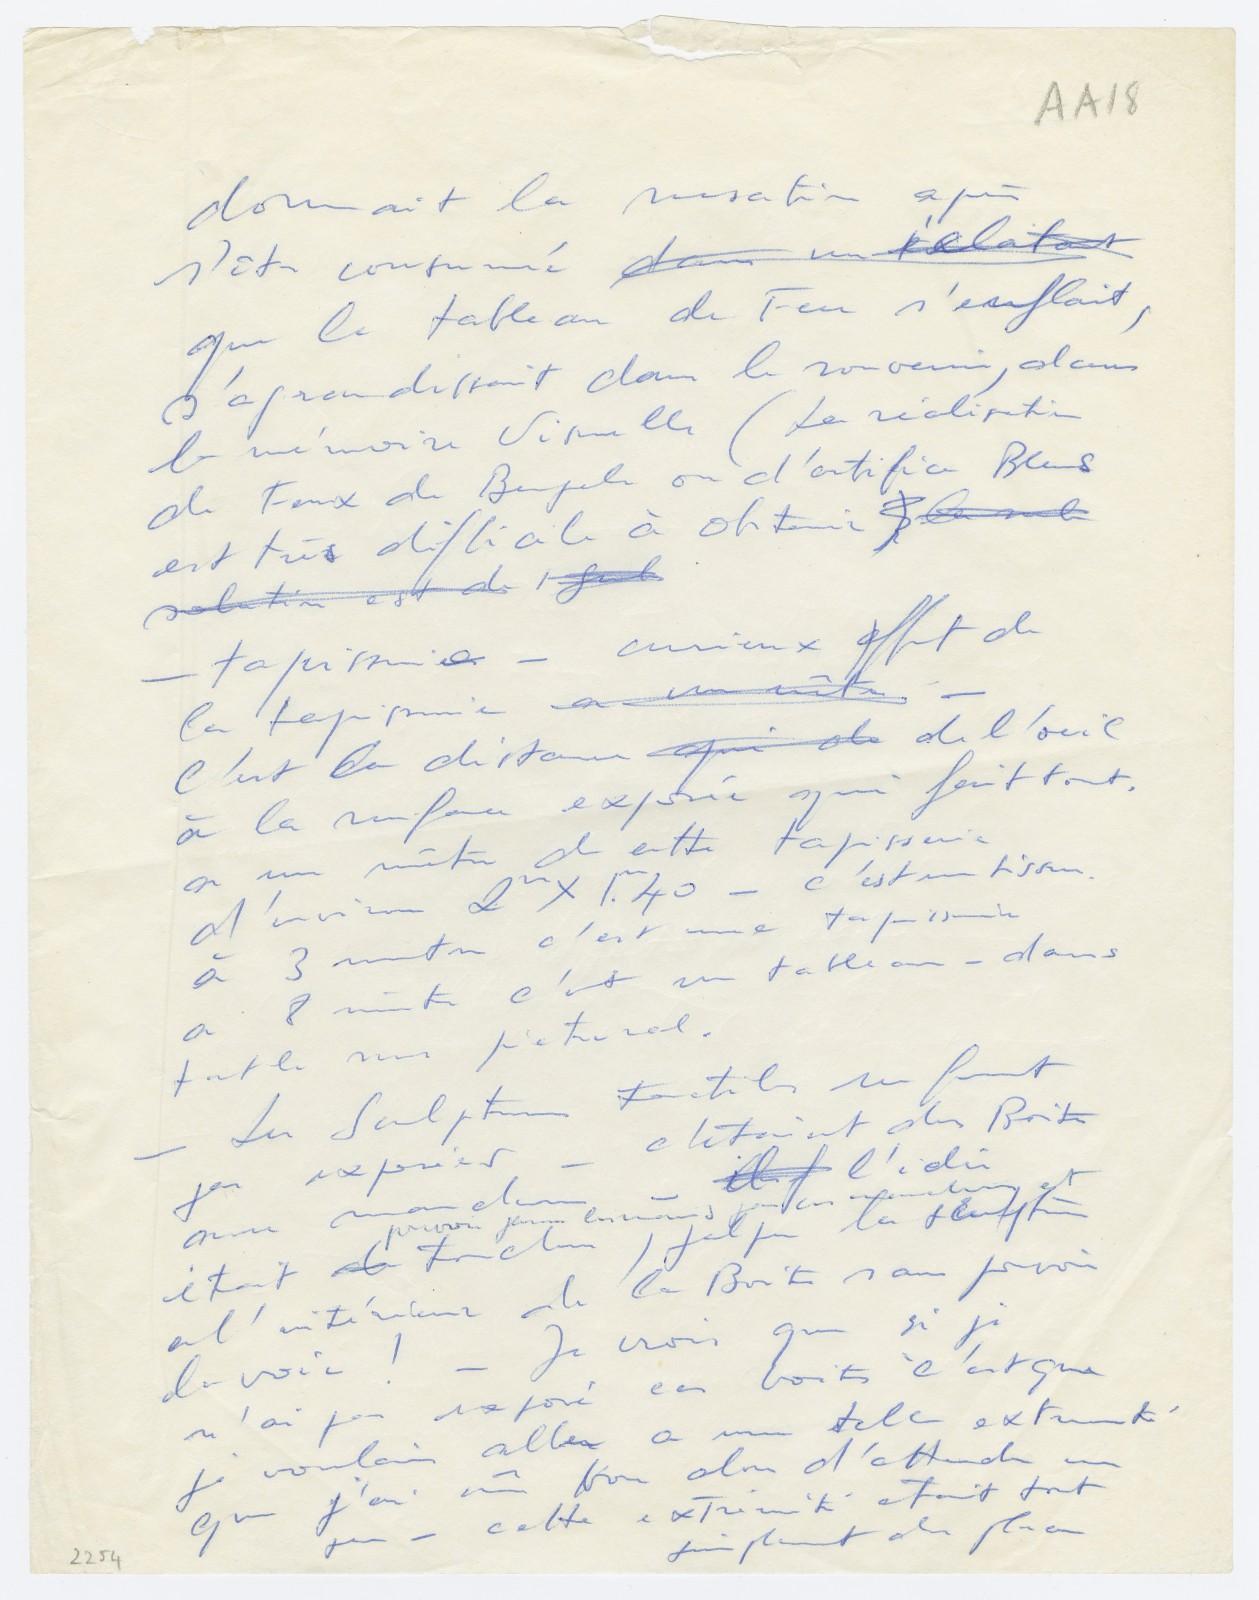 AA18
donnait la sensation après
s'être consumé ~~dans un éclatant~~
que le tableau de Feu s'enflait,
s'agrandissait dans le souvenir, dans
la mémoire visuelle (La réalisation
de Feux de Bengale ou d'artifice Bleus
est très difficile à obtenir ~~la seule~~
~~solution est de~~
— tapisserie — curieux effet de
la tapisserie ~~a un mètre~~ —
C'est la distance ~~qui de~~ de l'œil
à la surface exposée qui fait tout.
a un mètre de cette tapisserie
d'environ 2m X 1m.40 — c'est un tissu.
à 3 mètres c'est une tapisserie
a 8 mètres c'est un tableau — dans
tout le sens pictural.
— Les Sculptures tactiles ne furent
pas exposées — c'étaient des Boites
avec manchons ~~il f~~ l'idée
pouvoir passer les mains par ces manchons et
était ~~de~~ toucher, palper la sculpture
a l'intérieur de la Boite sans pouvoir
la voir ! — Je crois que si je
n'ai pas exposé ces boites c'est que
je voulais aller a une telle extrémité
que j'ai cru bon alors d'attendre un
peu — cette extrémité etait tout
simplement de placer
2254